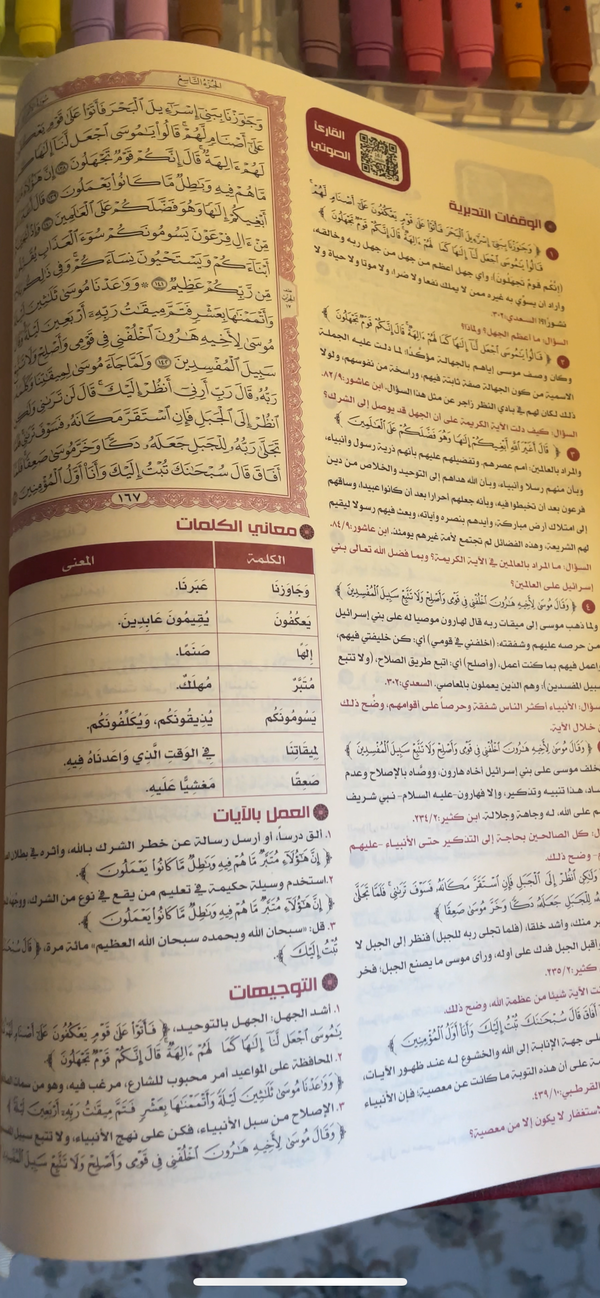 الجُزءُ التَّاسِعُ
وَجَٰوَزْنَا بِبَنِيٓ إِسْرَٰٓءِيلَ ٱلْبَحْرَ فَأَتَوْا۟ عَلَىٰ قَوْمٍ يَعْكُفُونَ
عَلَىٰٓ أَصْنَامٍ لَّهُمْ قَالُوا۟ يَٰمُوسَى ٱجْعَل لَّنَآ إِلَٰهًا كَمَا
لَهُمْ ءَالِهَةٌ قَالَ إِنَّكُمْ قَوْمٌ تَجْهَلُونَ ١٣٨ إِنَّ هَٰٓؤُلَآءِ
مَّا هُمْ فِيهِ وَبَٰطِلٌ مَّا كَانُوا۟ يَعْمَلُونَ ١٣٩ قَالَ أَغَيْرَ
أَبْغِيكُمْ إِلَٰهًا وَهُوَ فَضَّلَكُمْ عَلَى ٱلْعَٰلَمِينَ ١٤٠ وَإِذْ
مِّنْ ءَالِ فِرْعَوْنَ يَسُومُونَكُمْ سُوٓءَ ٱلْعَذَابِ
أَبْنَآءَكُمْ وَيَسْتَحْيُونَ نِسَآءَكُمْ وَفِي ذَٰلِكُم
مِّن رَّبِّكُمْ عَظِيمٌ ١٤١ وَوَٰعَدْنَا مُوسَىٰ ثَلَٰثِينَ
وَأَتْمَمْنَٰهَا بِعَشْرٍ فَتَمَّ مِيقَٰتُ رَبِّهِۦٓ أَرْبَعِينَ لَيْلَةً
مُوسَىٰ لِأَخِيهِ هَٰرُونَ ٱخْلُفْنِي فِي قَوْمِي وَأَصْلِحْ وَلَا
سَبِيلَ ٱلْمُفْسِدِينَ ١٤٢ وَلَمَّا جَآءَ مُوسَىٰ لِمِيقَٰتِنَا وَكَلَّمَهُۥ
رَبُّهُۥ قَالَ رَبِّ أَرِنِيٓ أَنظُرْ إِلَيْكَ قَالَ لَن تَرَىٰنِي وَلَٰكِنِ
ٱنظُرْ إِلَى ٱلْجَبَلِ فَإِنِ ٱسْتَقَرَّ مَكَانَهُۥ فَسَوْفَ تَرَىٰنِي
تَجَلَّىٰ رَبُّهُۥ لِلْجَبَلِ جَعَلَهُۥ دَكًّا وَخَرَّ مُوسَىٰ صَعِقًا فَلَمَّآ
أَفَاقَ قَالَ سُبْحَٰنَكَ تُبْتُ إِلَيْكَ وَأَنَا۠ أَوَّلُ ٱلْمُؤْمِنِينَ
١٦٧
القارئ
الصوتي
الوقفات التدبرية
١ ﴿ وَجَٰوَزْنَا بِبَنِيٓ إِسْرَٰٓءِيلَ ٱلْبَحْرَ فَأَتَوْا۟ عَلَىٰ قَوْمٍ يَعْكُفُونَ عَلَىٰٓ أَصْنَامٍ لَّهُمْ
قَالُوا۟ يَٰمُوسَى ٱجْعَل لَّنَآ إِلَٰهًا كَمَا لَهُمْ ءَالِهَةٌ قَالَ إِنَّكُمْ قَوْمٌ تَجْهَلُونَ ﴾
(إنكم قوم تجهلون)، وأي جهل أعظم من جهل من جهل ربه وخالقه،
وأراد أن يسوي به غيره ممن لا يملك نفعا ولا ضرا، ولا موتا ولا حياة ولا
نشورا؟! السعدي:٣٠٢.
السؤال: ما أعظم الجهل؟ ولماذا؟
٢ ﴿ قَالُوا۟ يَٰمُوسَى ٱجْعَل لَّنَآ إِلَٰهًا كَمَا لَهُمْ ءَالِهَةٌ قَالَ إِنَّكُمْ قَوْمٌ تَجْهَلُونَ ﴾
وكان وصف موسى إياهم بالجهالة مؤكداً؛ لما دلت عليه الجملة
الاسمية من كون الجهالة صفة ثابتة فيهم، وراسخة من نفوسهم، ولولا
ذلك لكان لهم في بادي النظر زاجر عن مثل هذا السؤال. ابن عاشور:٨٢/٩.
السؤال: كيف دلت الآية الكريمة على أن الجهل قد يوصل إلى الشرك؟
٣ ﴿ قَالَ أَغَيْرَ ٱللَّهِ أَبْغِيكُمْ إِلَٰهًا وَهُوَ فَضَّلَكُمْ عَلَى ٱلْعَٰلَمِينَ ﴾
والمراد بالعالمين: أمم عصرهم، وتفضيلهم عليهم بأنهم ذرية رسول وأنبياء،
وبأن منهم رسلا وأنبياء، وبأن الله هداهم إلى التوحيد والخلاص من دين
فرعون بعد أن تخبطوا فيه، وبأنه جعلهم أحرارا بعد أن كانوا عبيدا، وساقهم
إلى امتلاك أرض مباركة، وأيدهم بنصره وآياته، وبعث فيهم رسولا ليقيم
لهم الشريعة، وهذه الفضائل لم تجتمع لأمة غيرهم يومئذ. ابن عاشور:٨٤/٩.
السؤال: ما المراد بالعالمين في الآية الكريمة؟ وبما فضل الله تعالى بني
إسرائيل على العالمين؟
٤ ﴿ وَقَالَ مُوسَىٰ لِأَخِيهِ هَٰرُونَ ٱخْلُفْنِي فِي قَوْمِي وَأَصْلِحْ وَلَا تَتَّبِعْ سَبِيلَ ٱلْمُفْسِدِينَ ﴾
ولما ذهب موسى إلى ميقات ربه قال لهارون موصيا له على بني إسرائيل
من حرصه عليهم وشفقته: (اخلفني في قومي) أي: كن خليفتي فيهم،
واعمل فيهم بما كنت أعمل، (وأصلح) أي: اتبع طريق الصلاح، (ولا تتبع
سبيل المفسدين): وهم الذين يعملون بالمعاصي. السعدي:٣٠٢.
سؤال: الأنبياء أكثر الناس شفقة وحرصاً على أقوامهم، وضّح ذلك
خلال الآية.
﴿ وَقَالَ مُوسَىٰ لِأَخِيهِ هَٰرُونَ ٱخْلُفْنِي فِي قَوْمِي وَأَصْلِحْ وَلَا تَتَّبِعْ سَبِيلَ ٱلْمُفْسِدِينَ ﴾
خلف موسى على بني إسرائيل أخاه هارون، ووصّاه بالإصلاح وعدم
هذا تنبيه وتذكير، وإلا فهارون -عليه السلام- نبي شريف
على الله، له وجاهة وجلالة. ابن كثير:٢٣٤/٢.
كل الصالحين بحاجة إلى التذكير حتى الأنبياء -عليهم
وضح ذلك.
وَلَٰكِنِ ٱنظُرْ إِلَى ٱلْجَبَلِ فَإِنِ ٱسْتَقَرَّ مَكَانَهُۥ فَسَوْفَ تَرَىٰنِي فَلَمَّا تَجَلَّىٰ
لِلْجَبَلِ جَعَلَهُۥ دَكًّا وَخَرَّ مُوسَىٰ صَعِقًا ﴾
منك، وأشد خلقا، (فلما تجلى ربه للجبل) فنظر إلى الجبل لا
وأقبل الجبل فدك على أوله، ورأى موسى ما يصنع الجبل؛ فخر
كثير:٢٣٥/٢.
الآية شيئا من عظمة الله، وضح ذلك.
أَفَاقَ قَالَ سُبْحَٰنَكَ تُبْتُ إِلَيْكَ وَأَنَا۠ أَوَّلُ ٱلْمُؤْمِنِينَ ﴾
على جهة الإنابة إلى الله والخشوع له عند ظهور الآيات،
على أن هذه التوبة ما كانت عن معصية؛ فإن الأنبياء
القرطبي:٤٣٩/١٠.
لاستغفار لا يكون إلا من معصية؟
معاني الكلمات
الكلمة المعنى
وَجَاوَزنَا عَبَرنَا.
يَعكُفُونَ يُقِيمُونَ عَابِدِينَ.
إِلهًا صَنَمًا.
مُتَبَّرٌ مُهلَكٌ.
يَسُومُونَكُم يُذِيقُونَكُم، وَيُكَلِّفُونَكُم.
لِمِيقَاتِنَا فِي الوَقتِ الَّذِي وَاعَدنَاهُ فِيهِ.
صَعِقًا مَغشِيًّا عَلَيهِ.
العمل بالآيات
١. ألق درساً، أو أرسل رسالة عن خطر الشرك بالله، وأثره في بطلان
﴿ إِنَّ هَٰٓؤُلَآءِ مُتَبَّرٌ مَّا هُمْ فِيهِ وَبَٰطِلٌ مَّا كَانُوا۟ يَعْمَلُونَ ﴾.
٢. استخدم وسيلة حكيمة في تعليم من يقع في نوع من الشرك،
﴿ إِنَّ هَٰٓؤُلَآءِ مُتَبَّرٌ مَّا هُمْ فِيهِ وَبَٰطِلٌ مَّا كَانُوا۟ يَعْمَلُونَ ﴾.
٣. قل: «سبحان الله وبحمده سبحان الله العظيم» مائة مرة، ﴿ قَالَ سُبْحَٰنَكَ
تُبْتُ إِلَيْكَ ﴾.
التوجيهات
١. أشد الجهل: الجهل بالتوحيد، ﴿ فَأَتَوْا۟ عَلَىٰ قَوْمٍ يَعْكُفُونَ عَلَىٰٓ أَصْنَامٍ لَّهُمْ
يَٰمُوسَى ٱجْعَل لَّنَآ إِلَٰهًا كَمَا لَهُمْ ءَالِهَةٌ قَالَ إِنَّكُمْ قَوْمٌ تَجْهَلُونَ ﴾
٢. المحافظة على المواعيد أمر محبوب للشارع، مرغب فيه، وهو من سمات
﴿ وَوَٰعَدْنَا مُوسَىٰ ثَلَٰثِينَ لَيْلَةً وَأَتْمَمْنَٰهَا بِعَشْرٍ فَتَمَّ مِيقَٰتُ رَبِّهِۦٓ أَرْبَعِينَ لَيْلَةً ﴾
٣. الإصلاح من سبل الأنبياء، فكن على نهج الأنبياء، ولا تتبع سبيل
﴿ وَقَالَ مُوسَىٰ لِأَخِيهِ هَٰرُونَ ٱخْلُفْنِي فِي قَوْمِي وَأَصْلِحْ وَلَا تَتَّبِعْ سَبِيلَ